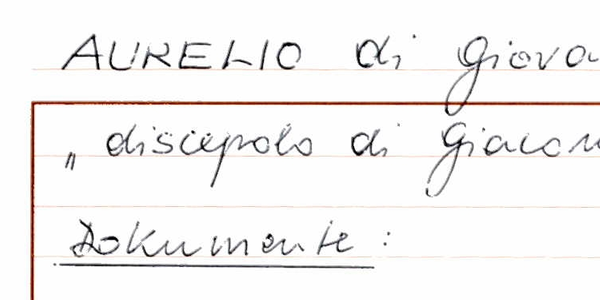 AURELIO di Giova
„ discepolo di Giacom
Dokumente: